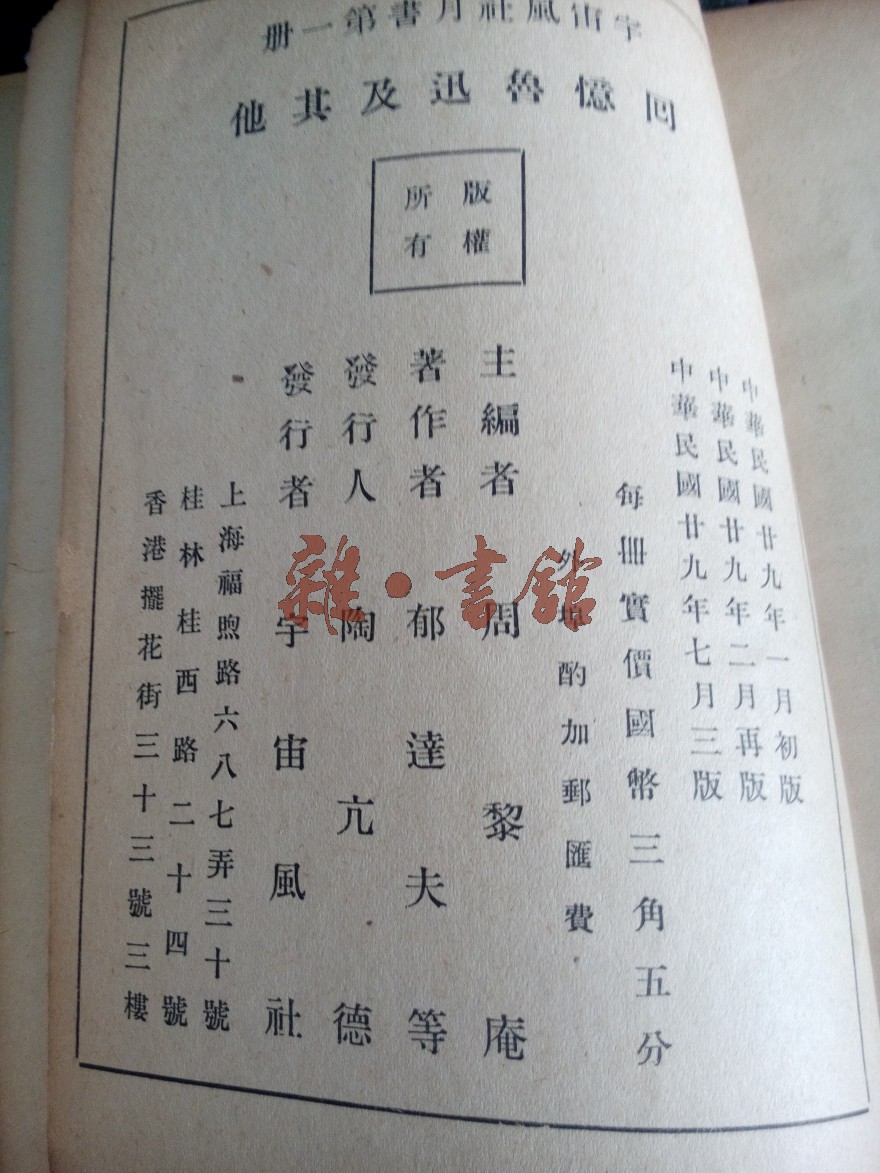 宇宙風社月書第一册
回憶魯迅及其他
版權
所有
中華民國廿九年一月初版
中華民國廿九年二月再版
中華民國廿九年七月三版
每冊實價國幣三角五分
外埠酌加郵匯費
主編者 周黎庵
著作者 郁達夫等
發行人 陶亢德
發行者 宇宙風社
上海福煦路六八七弄三十號
桂林桂西路二十四號
香港擺花街三十三號三樓
雜·書館